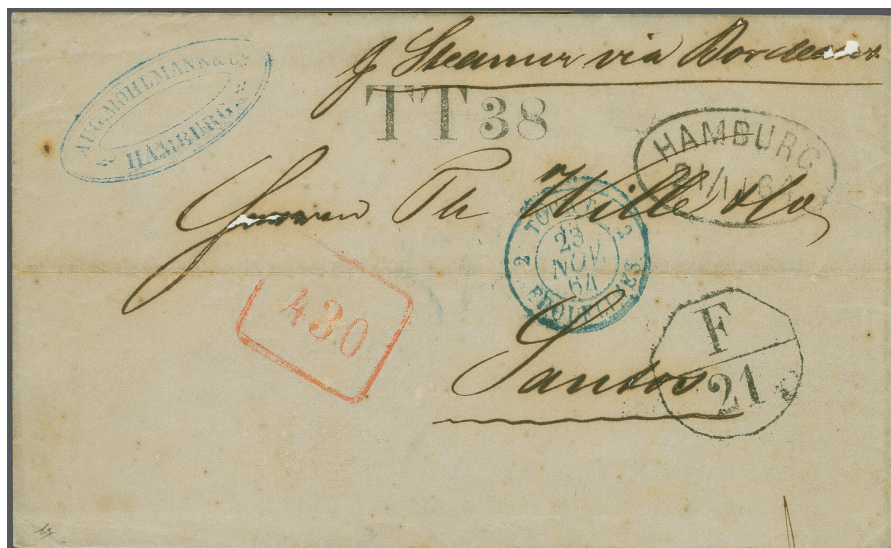 AUG. MÖHLMANN & Co
HAMBURG
p Steamer via Bordeaux
TT 38
HAMBURG
21/11 64
Herren Th Wille & Co
2 TOUR-T 2
23
NOV.
64
ERQUELINES
430
Santos
F
21